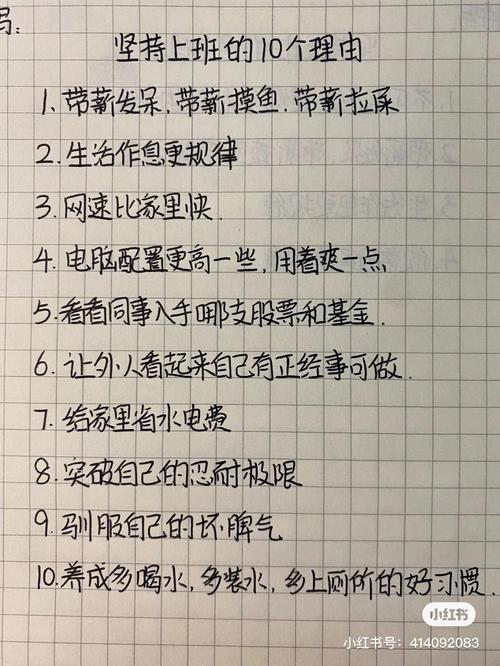 坚持上班的10个理由
1.带薪发呆,带薪摸鱼.带薪拉屎
2.生活作息更规律
3.网速比家里快.
4.电脑配置更高一些,用着爽一点
5.看看同事入手哪支股票和基金.
6.让外人看起来自己有正经事可做.
7.给家里省水电费
8.突破自己的忍耐极限
9.驯服自己的坏脾气
10.养成多喝水,多装水,多上厕所的好习惯.
小红书
小红书号：414092083